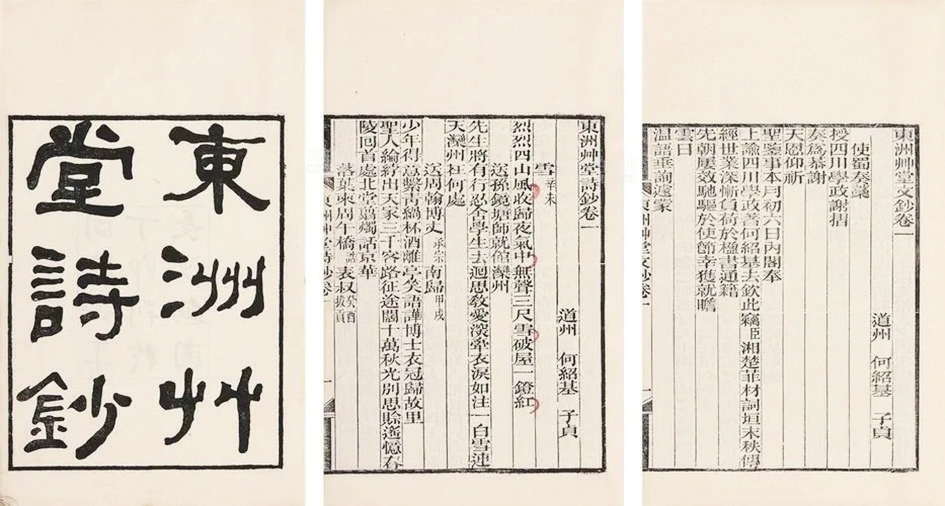 東洲艸
堂詩鈔
東洲艸堂詩鈔卷一
道州 何紹基 子貞
雪 辛未
烈烈四山風收歸夜氣中無聲三尺雪破屋一鐙紅
送孫鏡塘師就館灤州
先生將有行忍令學生去迴思敎愛深牽衣淚如注一白雪連
天灤州在何處
送周翰博丈 承宗 南歸 甲戌
少年得意繫青 杯酒離亭笑語譁博士衣冠歸故里
聖人綸綍出天家三千客路征途闊十萬秋光別思賒遙憶舂
陵回首處北堂翦燭話京華
落葉柬周午橋 表叔 癸酉拔貢
東洲艸堂詩鈔卷一
一
東洲艸堂文鈔卷一
道州 何紹基 子貞
使蜀奏稾
授四川學政謝摺
奏爲恭謝
天恩仰祈
聖鑒事本月初六日內閣奉
上諭四川學政著何紹基去欽此竊臣湘楚菲材詞垣末秩傳
經世業深慚負荷於楹書通籍
先朝屢效馳驅於使節幸獲就瞻
雲日
溫語垂詢遂蒙
東洲艸堂文鈔卷一
一